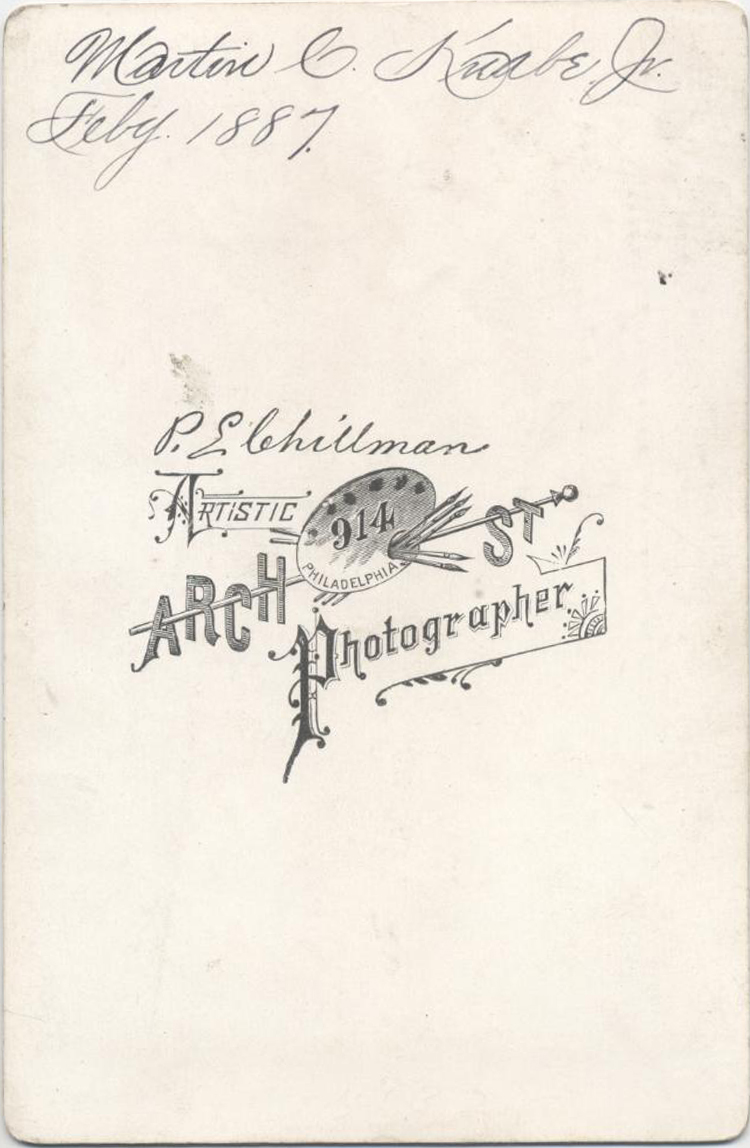 Martin C. Knabe, Jr.
Feby. 1887.
P. E. Chillman
ARTISTIC
914
PHILADELPHIA
ARCH ST
Photographer